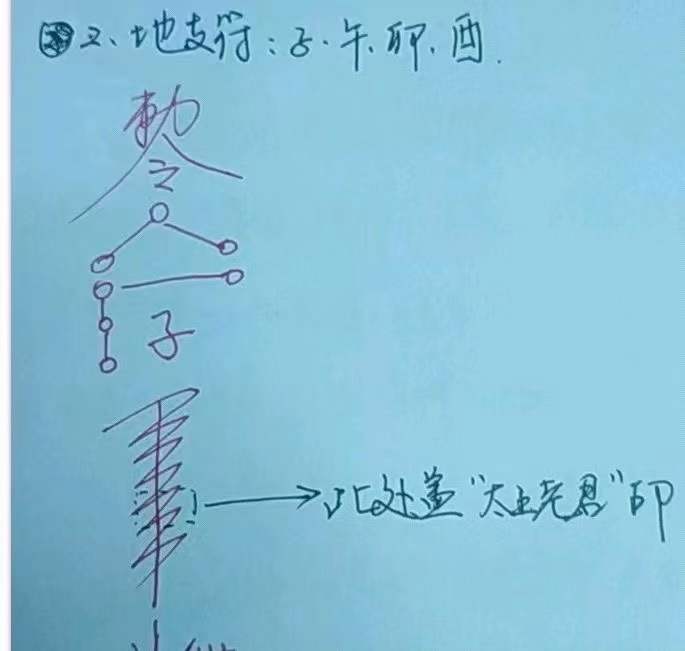 2、地支符:子、午、卯、酉.
勅
令
子
此处盖“太上老君”印